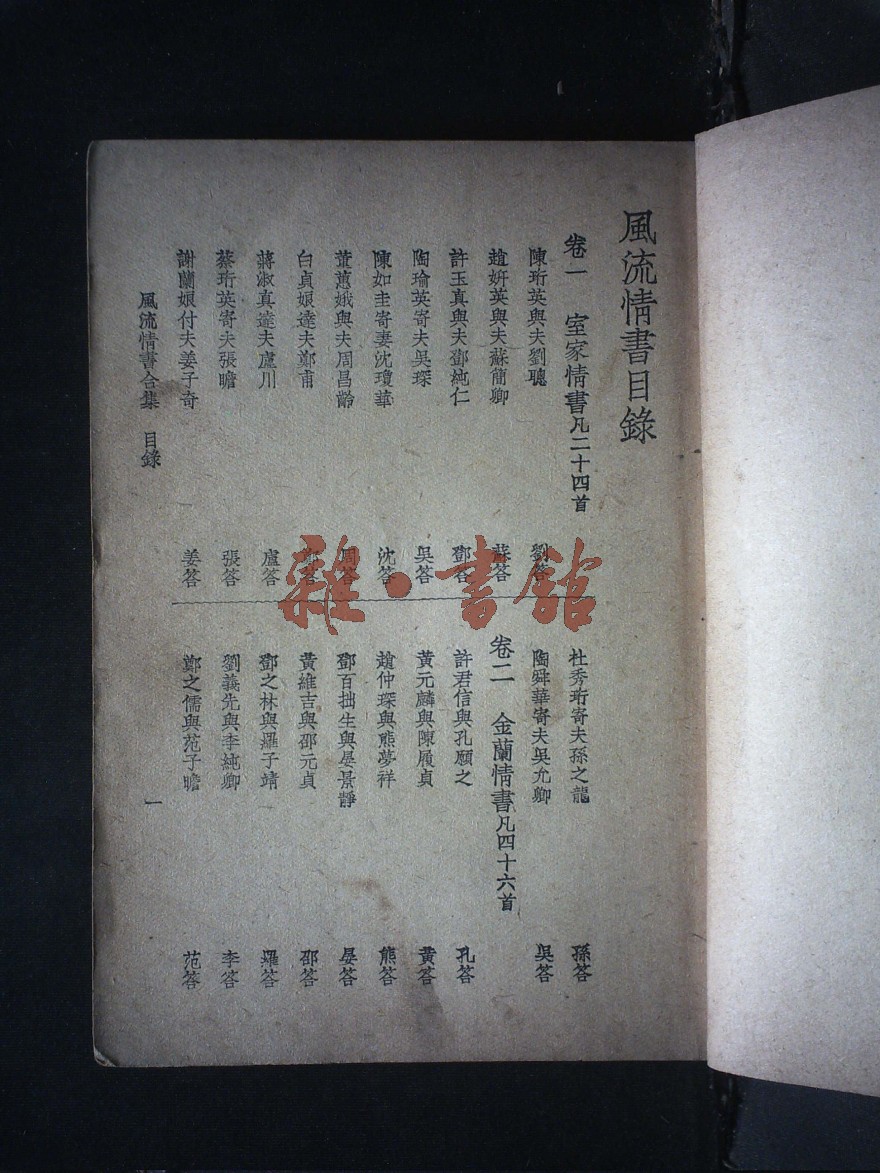 風流情書目錄
卷一 室家情書凡二十四首
陳珩英與夫劉聰 劉答
趙姸英與夫蘇簡卿 蘇答
許玉真與夫鄧純仁 鄧答
陶瑜英寄夫吳琛 吳答
陳如圭寄妻沈瓊華 沈答
董蕙娥與夫周昌齡 周答
白貞娘達夫鄭甫 鄭答
蔣淑真達夫盧川 盧答
蔡珩英寄夫張瞻 張答
謝蘭娘付夫姜子奇 姜答
杜秀珩寄夫孫之龍 孫答
陶舜華寄夫吳允卿 吳答
卷二 金蘭情書凡四十六首
許君信與孔願之 孔答
黃元麟與陳履貞 黃答
趙仲琛與熊夢祥 熊答
鄧百拙生與晏景靜 晏答
黃維吉與邵元貞 邵答
鄧之林與羅子靖 羅答
劉義先與李純卿 李答
鄭之儒與范子瞻 范答
風流情書合集 目錄 一
雜·書館